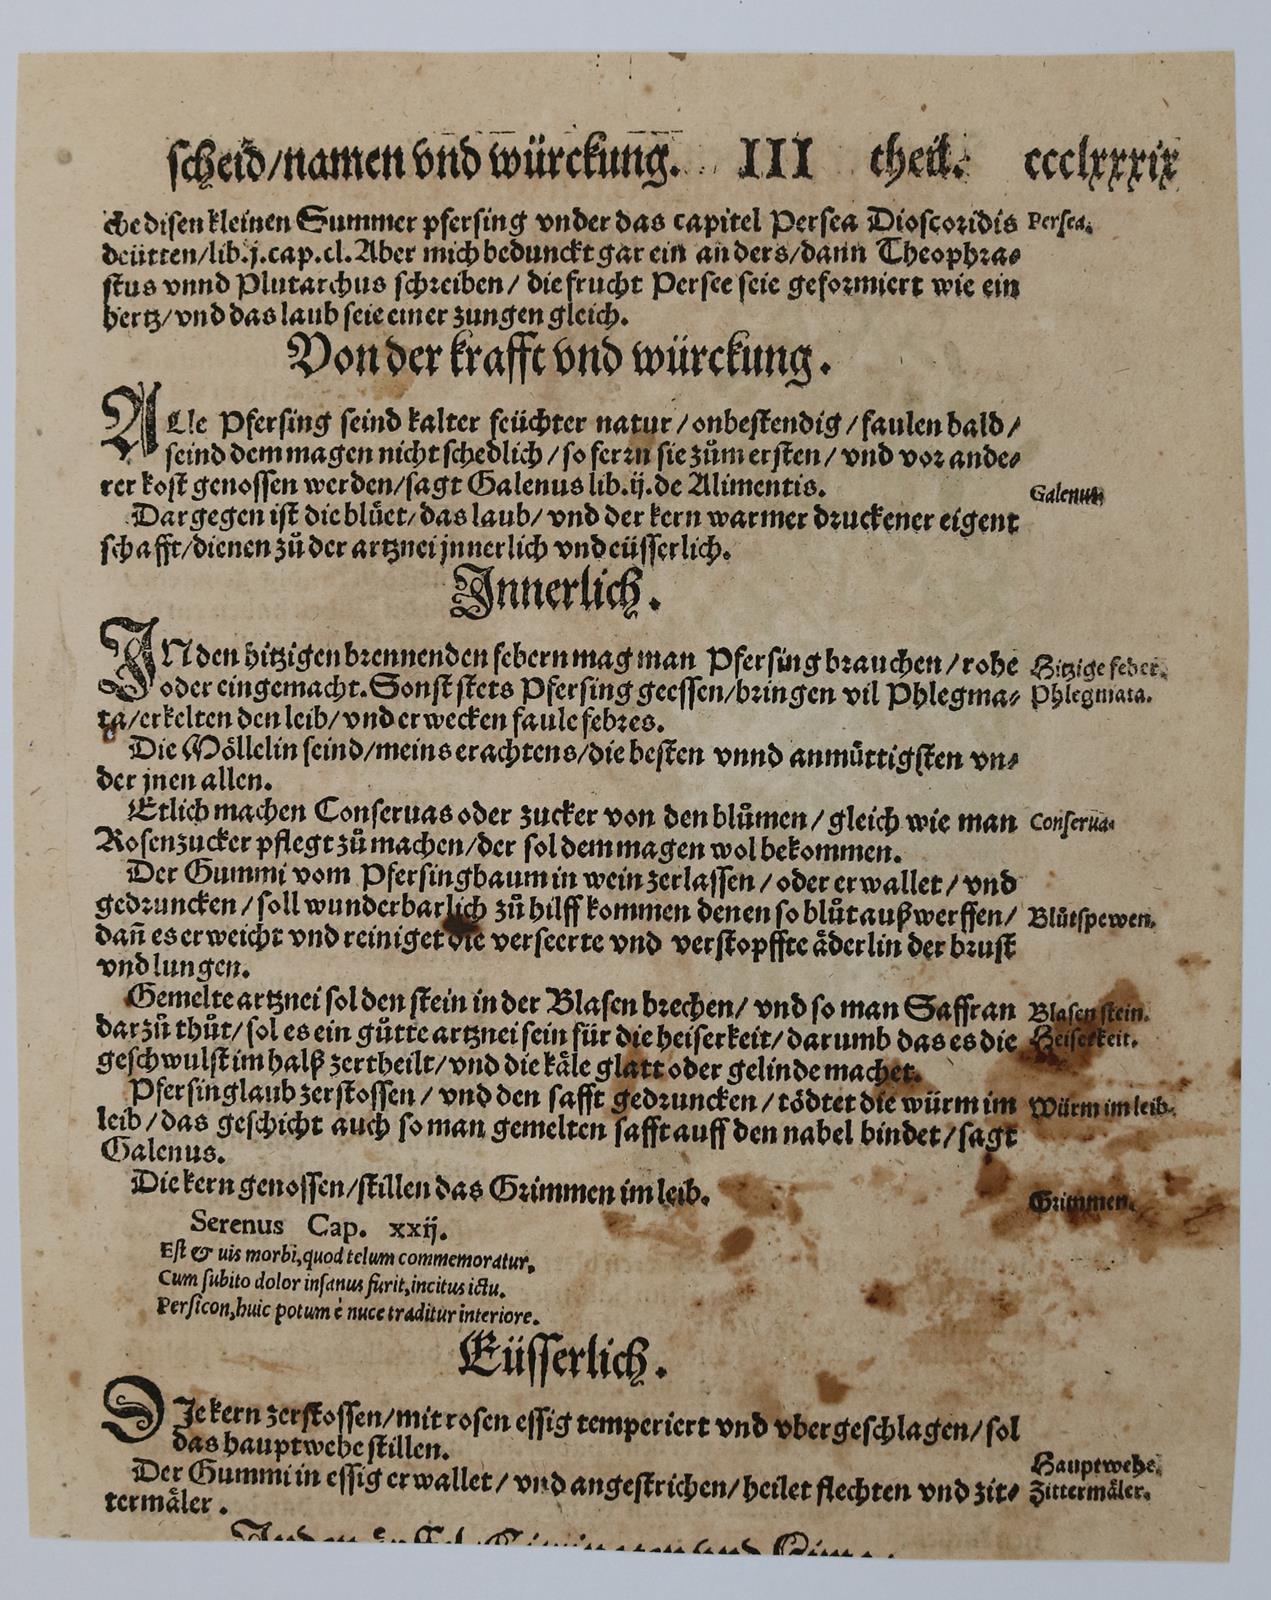 scheid/namen vnd würckung. III theil. ccclxxxix
che disen kleinen Summer pfersing vnder das capitel Persea Dioscoridis Persea.
deütten/lib.j.cap.cl. Aber mich bedunckt gar ein anders/dann Theophra⸗
stus vnnd Plutarchus schreiben/ die frucht Persee seie geformiert wie ein
hertz/vnd das laub seie einer zungen gleich.
Von der krafft vnd würckung.
ALle Pfersing seind kalter feüchter natur/onbestendig/faulen bald/
seind dem magen nicht schedlich/so ferrn sie zům ersten/ vnd vor ande⸗
rer kost genossen werden/sagt Galenus lib.ij.de Alimentis. Galenus
Dargegen ist die blüet/das laub/ vnd der kern warmer druckener eigent
schafft/dienen zů der artznei jnnerlich vnd eüsserlich.
Innerlich.
IN den hitzigen brennenden febern mag man Pfersing brauchen/rohe Hitzige feber.
oder eingemacht. Sonst stets Pfersing geessen/bringen vil Phlegma⸗ Phlegmata.
ta/erkelten den leib/vnd erwecken faule febres.
Die Möllelin seind/meins erachtens/die besten vnnd anmüttigsten vn⸗
der jnen allen.
Etlich machen Conseruas oder zucker von den blůmen/gleich wie man Conserua.
Rosenzucker pflegt zů machen/der sol dem magen wol bekommen.
Der Gummi vom Pfersingbaum in wein zerlassen/oder erwallet/vnd
gedruncken/soll wunderbarlich zů hilff kommen denen so blůt außwerffen/ Blůtspewen.
dañ es erweicht vnd reiniget die verseerte vnd verstopffte äderlin der brust
vnd lungen.
Gemelte artznei sol den stein in der Blasen brechen/ vnd so man Saffran Blasen stein.
darzů thůt/sol es ein gůtte artznei sein für die heiserkeit/darumb das es die Heiserkeit.
geschwulst im halß zertheilt/vnd die käle glatt oder gelinde machet.
Pfersinglaub zerstossen/ vnd den safft gedruncken/tödtet die würm im Würm im leib.
leib/das geschicht auch so man gemelten safft auff den nabel bindet/sagt
Galenus.
Die kern genossen/stillen das Grimmen im leib. Grimmen.
Serenus Cap. xxij.
Est & uis morbi,quod telum commemoratur,
Cum subito dolor insanus furit,incitus ictu.
Persicon,huic potum è nuce traditur interiore.
Eüsserlich.
DIe kern zerstossen/mit rosen essig temperiert vnd vbergeschlagen/sol
das hauptwehe stillen. Hauptwehe.
Der Gummi in essig erwallet/vnd angestrichen/heilet flechten vnd zit⸗ Zittermäler.
termäler.